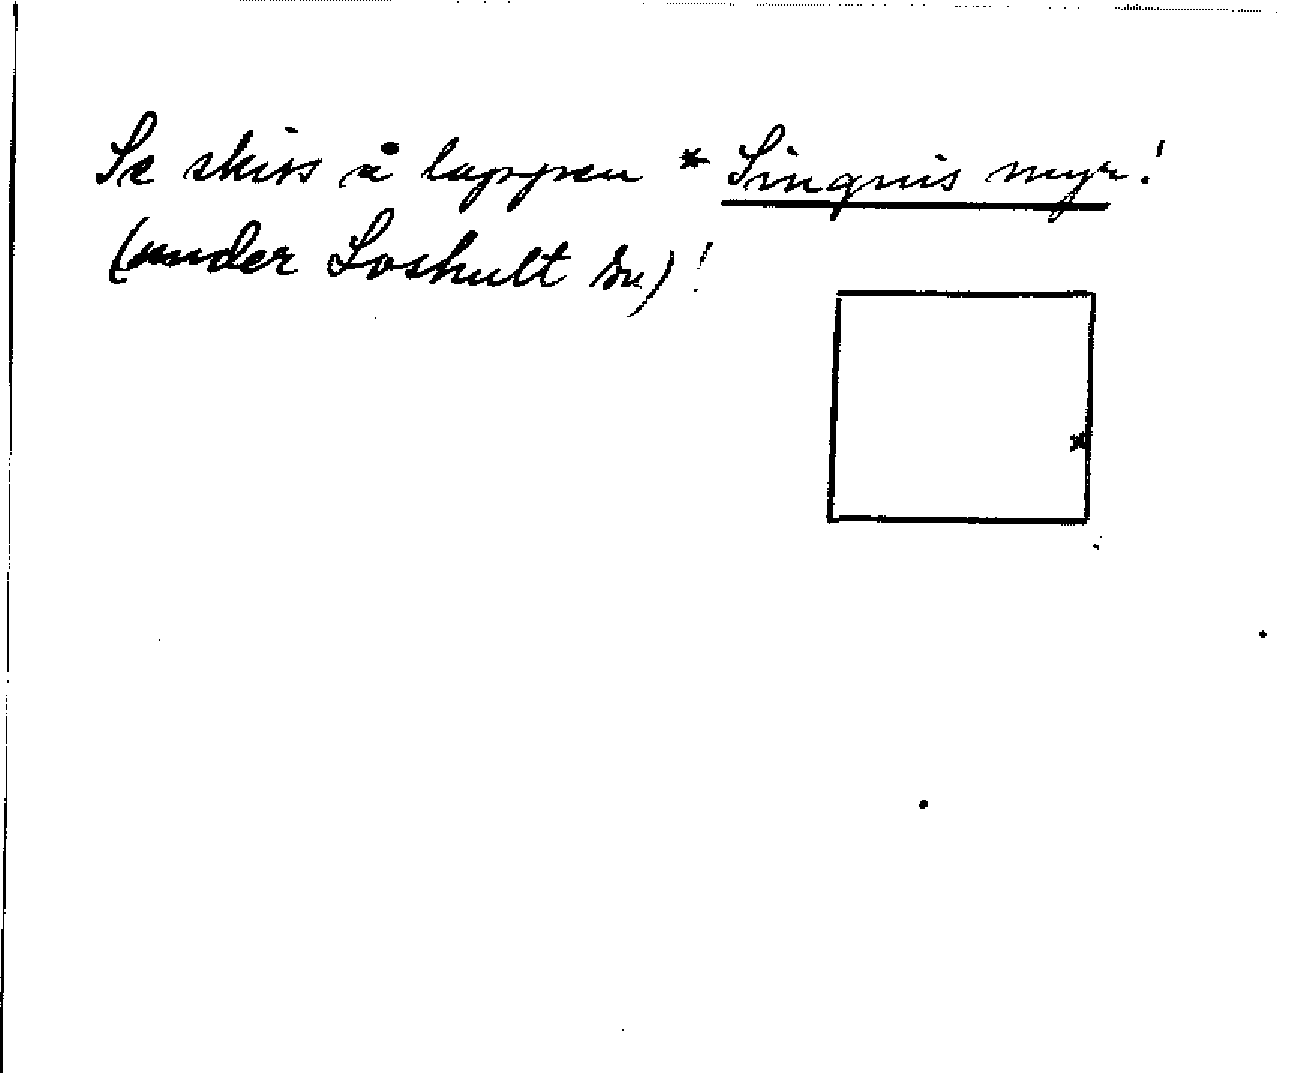 Se skiss å lappen * Singnis myr!
(under Loshult sn)!